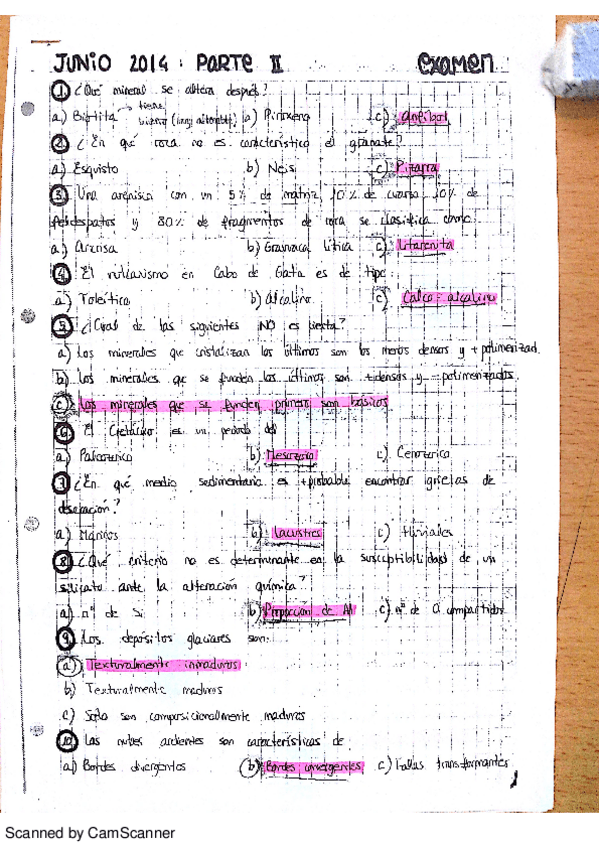 JUNIO 2014: PARTE II EXAMEN
① ¿Qué mineral se altera después?
a) Biotita → tiene a) Piroxeno c) Anfíbol
② ¿En qué roca no es característico el granate?
a) Esquisto b) Neis c) Pizarra
③ Una arenisca con un 5% de matriz, 10% de cuarzo, 10% de
feldespatos y 80% de fragmentos de roca se clasifica como:
a) Arcosa b) Grauvaca lítica c) Litarenita
④ El vulcanismo en Cabo de Gata es de tipo:
a) Toleítico b) Alcalino c) Calco-alcalino
⑤ ¿Cual de las siguientes NO es cierta?
a) Los minerales que cristalizan los últimos son los menos densos y + polimerizad.
b) Los minerales que se funden los últimos son + densos y - polimerizados.
c) Los minerales que se funden primero son básicos
⑥ El Cretácico es un periodo del
a) Paleozoico b) Mesozoico c) Cenozoico
⑦ ¿En qué medio sedimentario es + probable encontrar grietas de
desecación?
a) Marinos b) Lacustres c) Fluviales
⑧ ¿Qué criterio no es determinante en la susceptibilidad de un
silicato ante la alteración química?
a) nº de Si b) Proporción de Al c) nº de O compartidos
⑨ Los depósitos glaciares son:
a) Texturalmente inmaduros
b) Texturalmente maduros
c) Solo son composicionalmente maduros
⑩ Las nubes ardientes son características de
a) Bordes divergentes b) Bordes convergentes c) Fallas transformantes
1
Scanned by CamScanner